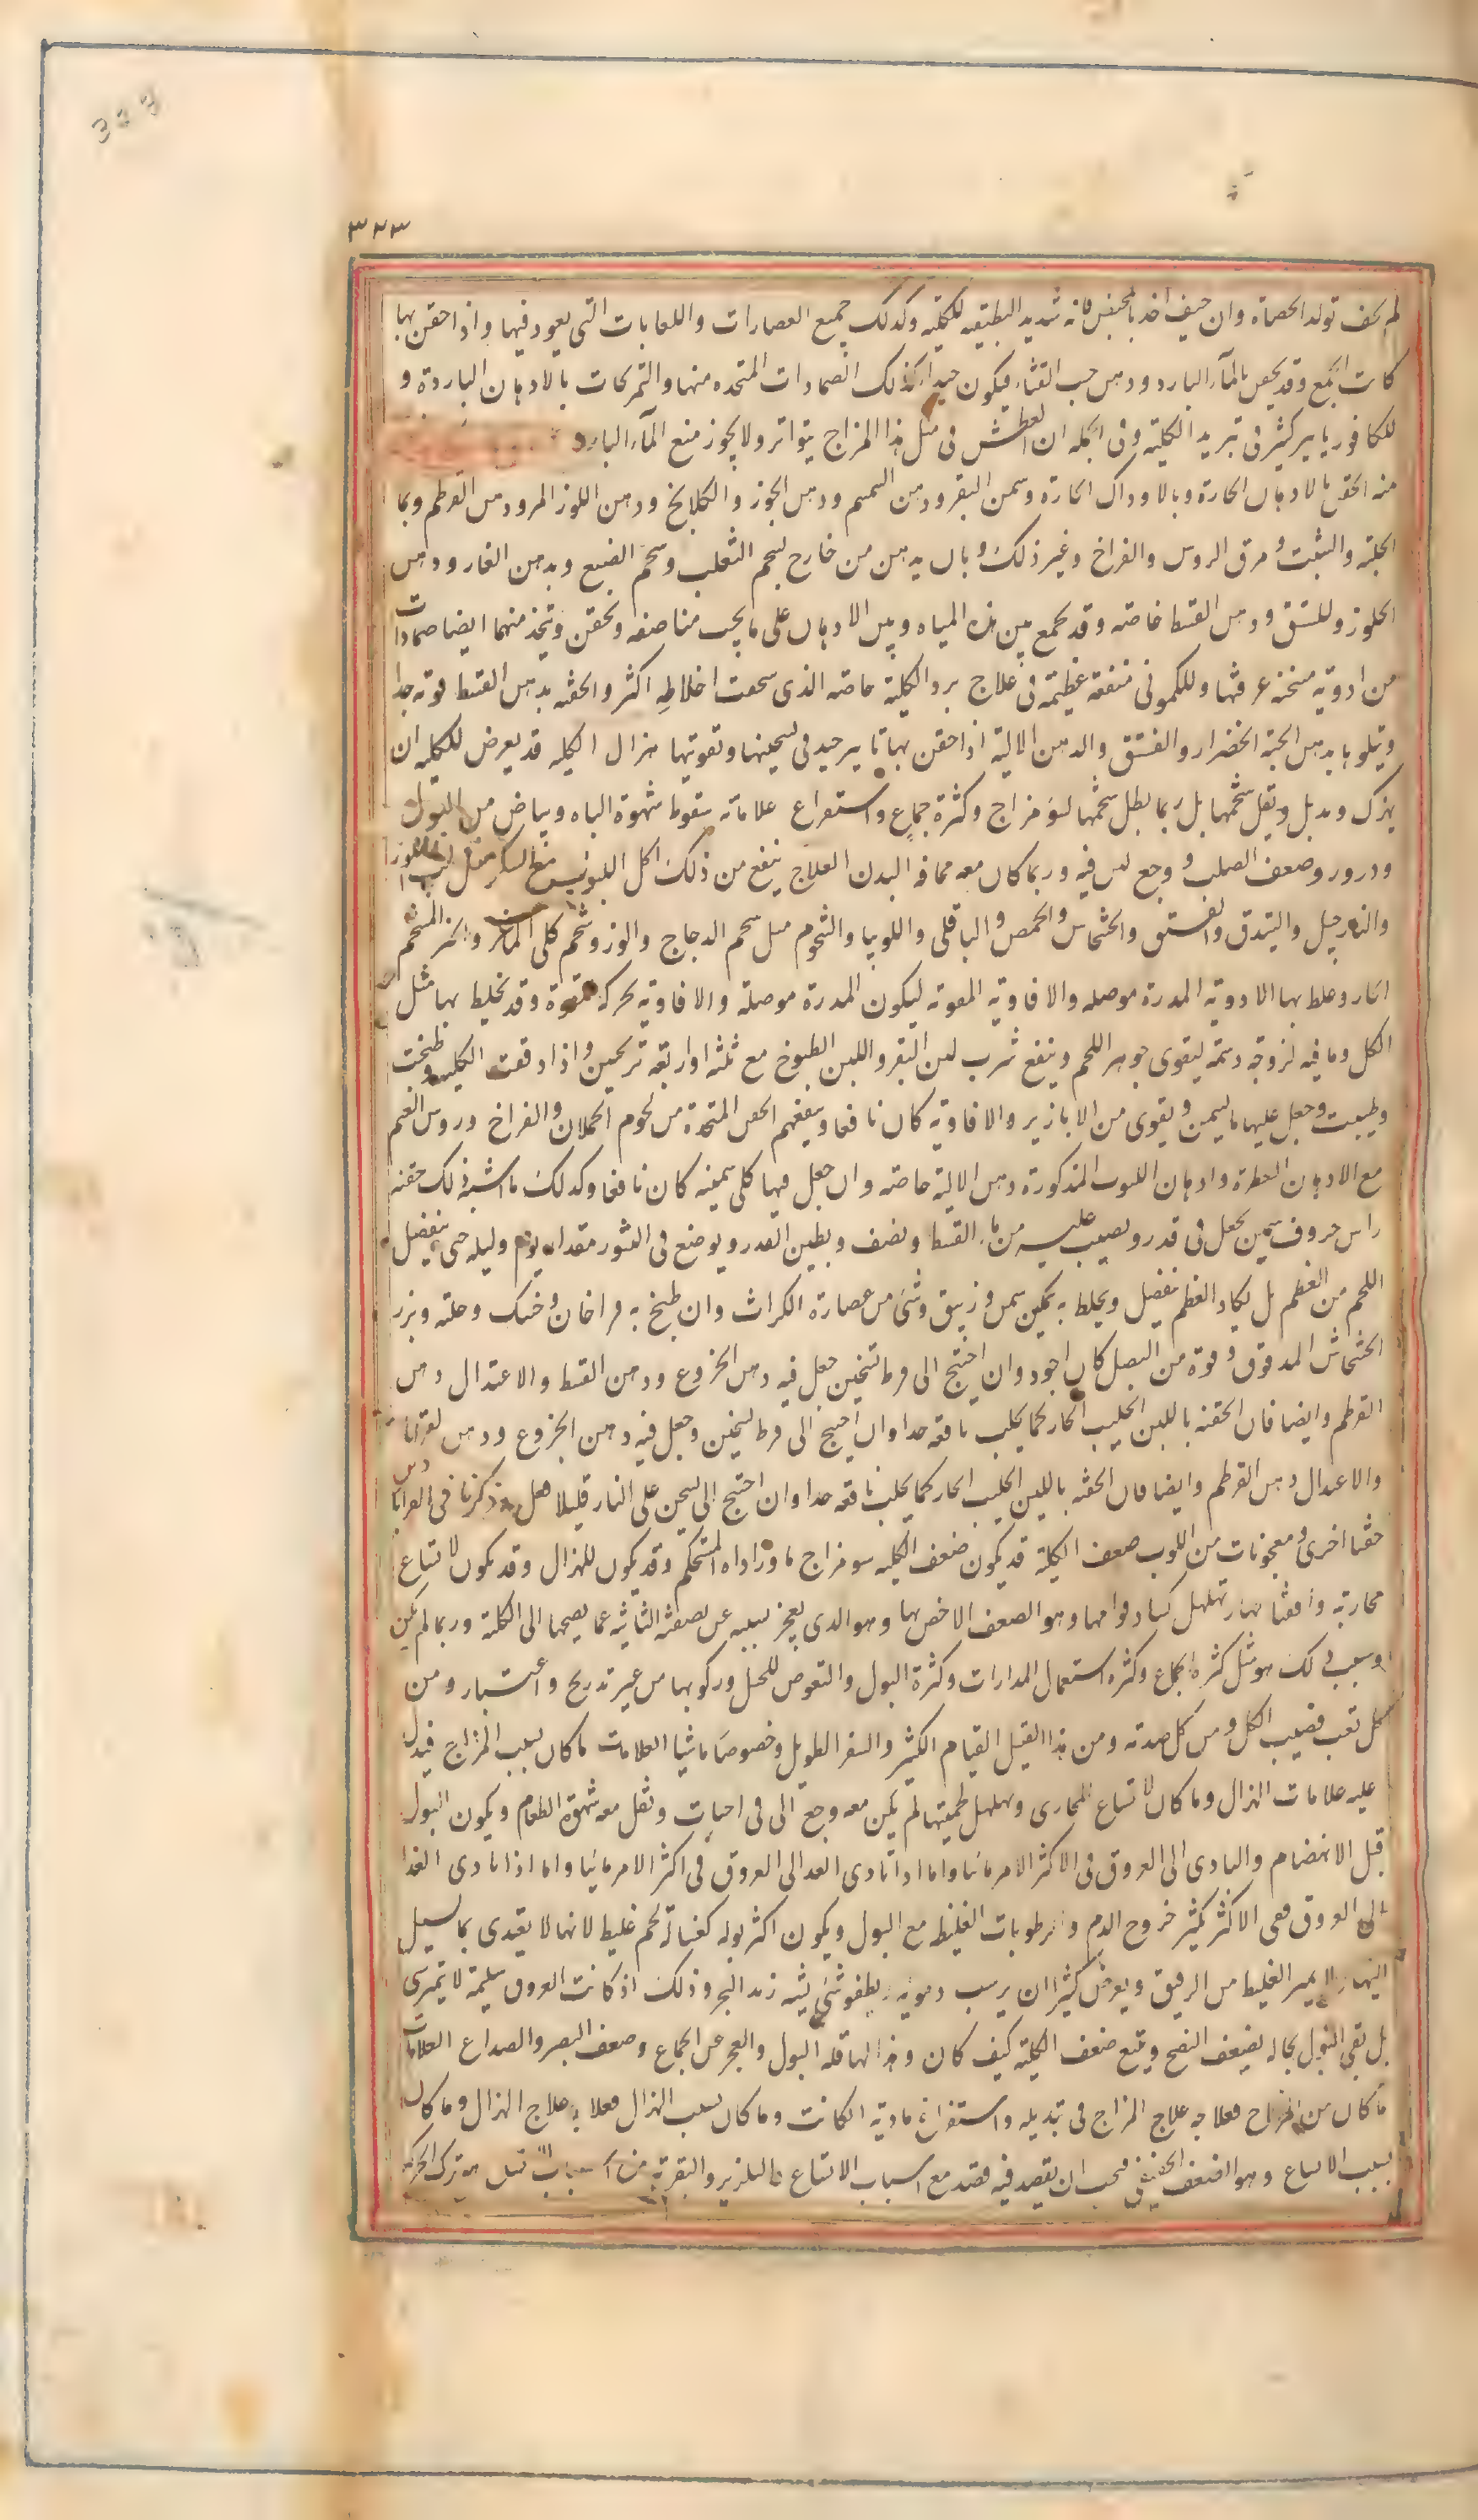 323
٣٢٣
لم يخف تولد الحصاة وان خيف اخذ بالمخيض فانه شديد التطفيه للكليه وكذلك جميع العصارات واللعابات التي يعود فيها واذا حقن بها
كانت انجع وقد يحقن بالماء البارد ودهن حب القثاء فيكون جيدا وكذلك الضمادات المتخده منها والتمريخات بالادهان الباردة و
للكافور تاثير كثير فى تبريد الكلية وفى الجمله ان العطش فى مثل هذا المزاج يتواتر ولا يجوز منع الماء البارد
منه الحقن بالادهان الحارة وبالاوداك الحارة وسمن البقر ودهن السمسم ودهن الجوز والكلكلانج ودهن اللوز المر ودهن القرطم وبما
الحلبة والشبت و مرق الروس والفراخ وغير ذلك وبان يدهن من خارج بشحم الثعلب وشحم الضبع وبدهن الغار ودهن
الجلوز وللفستق ودهن القسط خاصه وقد يجمع بين هذه المياه وبين الادهان على ما يجب مناصفه ويحقن ويتخذ منهما ايضا ضمادات
من ادوية مسخنة عرفتها وللكمونى منفعة عظيمة فى علاج برد الكلية خاصه الذى سحقت اخلاطه اكثر والحقنه بدهن القسط قوته جدا
ويتلوها بدهن الحبة الخضراء والفستق والدهن الالية اذا حقن بها تاثير جيد فى تسخينها وتقويتها هزال الكليه قد يعرض للكليه ان
يهزل ويذبل ويقل شحمها بل ربما بطل شحمها لسوء مزاج وكثرة جماع واستفراغ علاماته سقوط شهوة الباه وبياض من البول
ودرور وضعف الصلب و وجع لين فيه وربما كان معه نحافه البدن العلاج ينفع من ذلك اكل اللبوب مع السكر مثل لب اللوز
والنارجيل والبندق والفستق والخشخاش والحمص والباقلى واللوبيا والشحوم مثل شحم الدجاج والوز وشحم كلى الماعز والخبز المشحم
الحار وخلط بها الادوية المدرة موصله والافاوية المقوته ليكون المدرة موصلة والافاوية محركه للقوة وقد يخلط بها مثل
الكل وما فيه لزوجه دسمة ليقوى جوهر اللحم وينفع شرب لبن البقر واللبن المطبوخ مع ثلثه اواربعه ترنجبين و اذا دقت الكليه وطبخت
وطيبت وجعل عليها ما يسمن ويقوى من الابازير والافاوية كان نافعا وينفعهم الحقن المتخدة من لحوم الحملان والفراخ وروس الغنم
مع الادهان العطرة وادهان اللبوب المذكورة دهن الالية خاصه وان جعل فيها كلى سمينه كان نافعا وكذلك ما اشبه ذلك حقنه
راس خروف سمين يجعل فى قدر ويصب عليه من ماء القسط ونصف ويطين القدر ويوضع فى التنور مقدار يوم وليله حتى ينفصل
اللحم من العظم بل يكاد العظم ينفصل ويخلط به سمن وزنبق وشئ من عصارة الكراث وان طبخ به مراخان و خسك وحلبه وبزر
الخشخاش المدقوق وقوة من البصل كان اجود وان احتيج الى فرط تسخين جعل فيه دهن الخروع ودهن القسط والاعتدال دهن
القرطم وايضا فان الحقنه باللبن الحليب الحار كما يحلب نافعه جدا وان احتيج الى فرط تسخين وجعل فيه دهن الخروع ودهن
والاعتدال دهن القرطم وايضا فان الحقنه باللبن الحليب الحار كما يحلب نافعه جدا وان احتيج الى تسخين على النار قليلا فعل وقد ذكرنا فى القراباذين
حقنا اخرى و معجونات من اللبوب ضعف الكلية قد يكون ضعف الكليه سو مزاج ما وراداه المستحكم وقد يكون للهزال وقد يكون لاتساع
مجاريه وانفتاحها وتهلهل كباد قوامها وهو الضعف الاخص بها وهو الذى يعجز بسببه عن تصفيه المائيه عما يصحبها الى الكلية وربما لم يكن
وسبب ذلك هو مثل كثرة الجماع وكثره استعمال المدرات وكثرة البول والتعرض للخيل وركوبها من غير تدريج واعتبار ومن
كل تعب فصيب الكل ومن كل صدمة ومن هذا القبيل القيام الكثير والسفر الطويل وخصوصا ماشيا العلامات ما كان بسبب المزاج فيدل
عليه علامات الهزال وما كان لاتساع المجارى وتهلهل لحميتها لم يكن معه وجع الى فى احيان وتقل معه شهوة الطعام ويكون البول
قبل الانهضام والتادى الى العروق فى الاكثر الامر مائيا واما اذا تادى الغدا الى العروق فى اكثر الامر مائيا واما اذا تادى الغدا
الى العروق ففى الاكثر يكثر خروج الدم والرطوبات الغليظه مع البول ويكون اكثر بوله كغسالة لحم غليظ لانها لا يغتدى بما يسيل
اليها ولا يميز الغليظ من الرقيق ويعرض كثيرا ان يرسب دمويه ويطفو شئ يشبه زبد البحر وذلك اذ كانت العروق سليمة لا تجرى
بل يبقى البول بحاله بضعف النضج ويتبع ضعف الكلية كيف كان وهزالها قله البول والعجز عن الجماع وضعف البصر والصداع العلامات
ما كان من المزاج فعلاجه علاج المزاج فى تبديله واستفراغ مادته ان كانت وما كان بسبب الهزال فعلاجه علاج الهزال وما كان
بسبب الاتساع وهو الضعف الحقيقى فيجب ان يقصد فيه قصد منع اسباب الاتساع والتلزيز والتقوية من اسباب الاتساع هو ترك الحركه